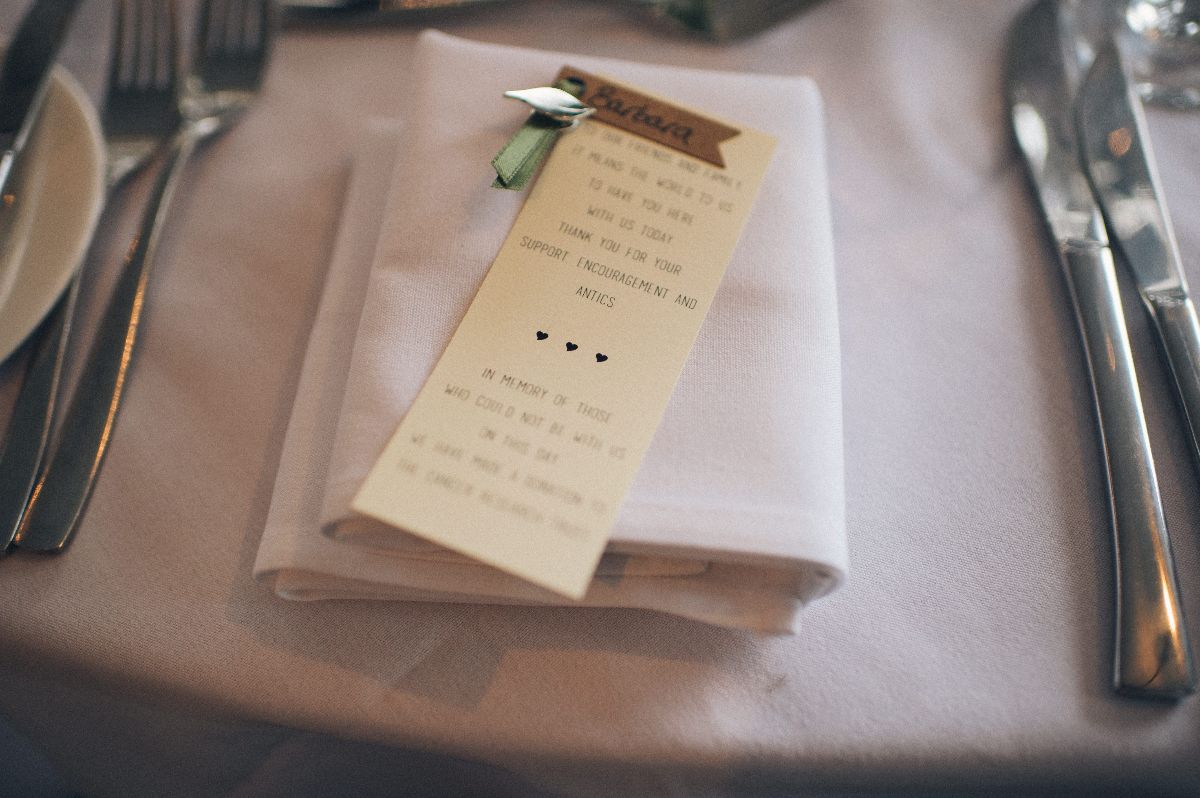 Barbara
OUR FRIENDS AND FAMILY
IT MEANS THE WORLD TO US
TO HAVE YOU HERE
WITH US TODAY
THANK YOU FOR YOUR
SUPPORT ENCOURAGEMENT AND
ANTICS
IN MEMORY OF THOSE
WHO COULD NOT BE WITH US
ON THIS DAY
WE HAVE MADE A DONATION TO
THE CANCER RESEARCH TRUST